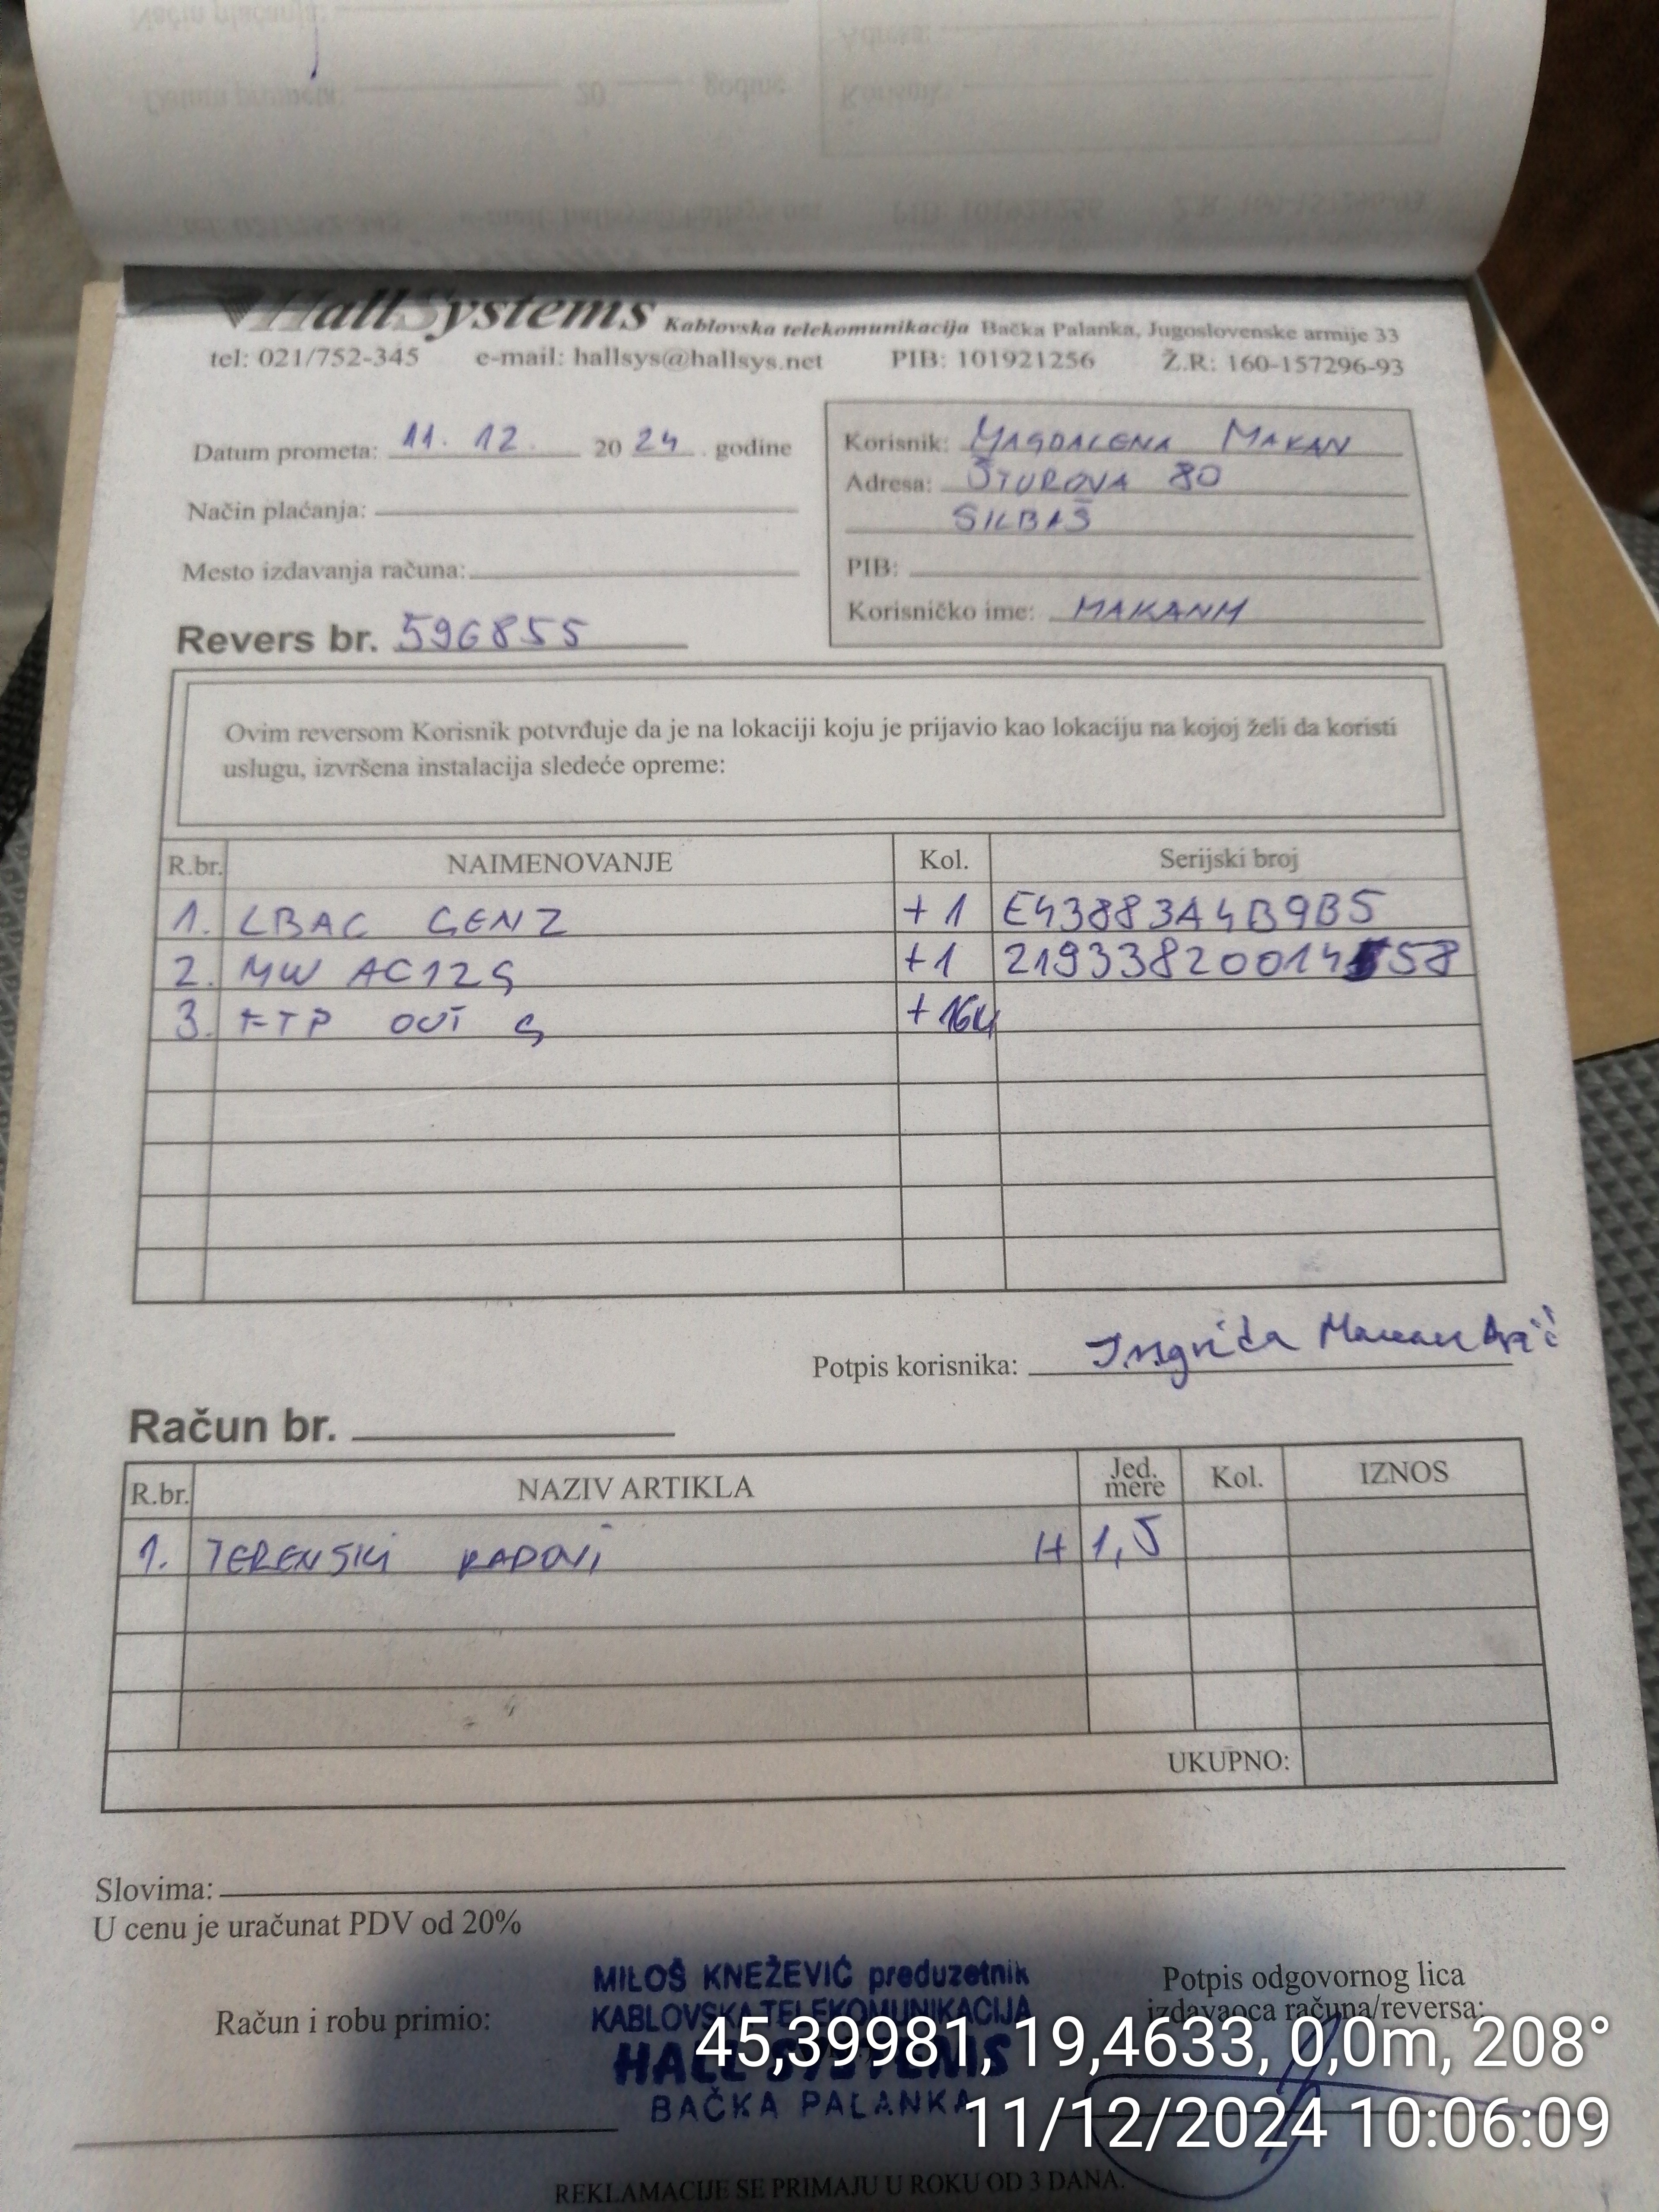 HallSystems Kablovska telekomunikacija Bačka Palanka, Jugoslovenske armije 33
tel: 021/752-345 e-mail: hallsys@hallsys.net PIB: 101921256 Ž.R: 160-157296-93
Datum prometa: 11. 12. 2024. godine
Način plaćanja:
Mesto izdavanja računa:
Revers br. 596855
Korisnik: MAGDALENA MAKAN
Adresa: ŠTUROVA 80
SILBAŠ
PIB:
Korisničko ime: MAKANM
Ovim reversom Korisnik potvrđuje da je na lokaciji koju je prijavio kao lokaciju na kojoj želi da koristi
uslugu, izvršena instalacija sledeće opreme:
R.br. NAIMENOVANJE Kol. Serijski broj
1. LBAC GEN2 +1 E43883A4B9B5
2. MW AC12G +1 21933820014558
3. FTP OUT G +16M
Potpis korisnika: Ingrida Makan
Račun br.
R.br. NAZIV ARTIKLA Jed. mere Kol. IZNOS
1. TERENSKI RADOVI H 1,5
UKUPNO:
Slovima:
U cenu je uračunat PDV od 20%
MILOŠ KNEŽEVIĆ preduzetnik
KABLOVSKA TELEKOMUNIKACIJA
HALL SYSTEMS
BAČKA PALANKA
Račun i robu primio:
Potpis odgovornog lica
izdavaoca računa/reversa:
45,39981, 19,4633, 0,0m, 208°
11/12/2024 10:06:09
REKLAMACIJE SE PRIMAJU U ROKU OD 3 DANA.